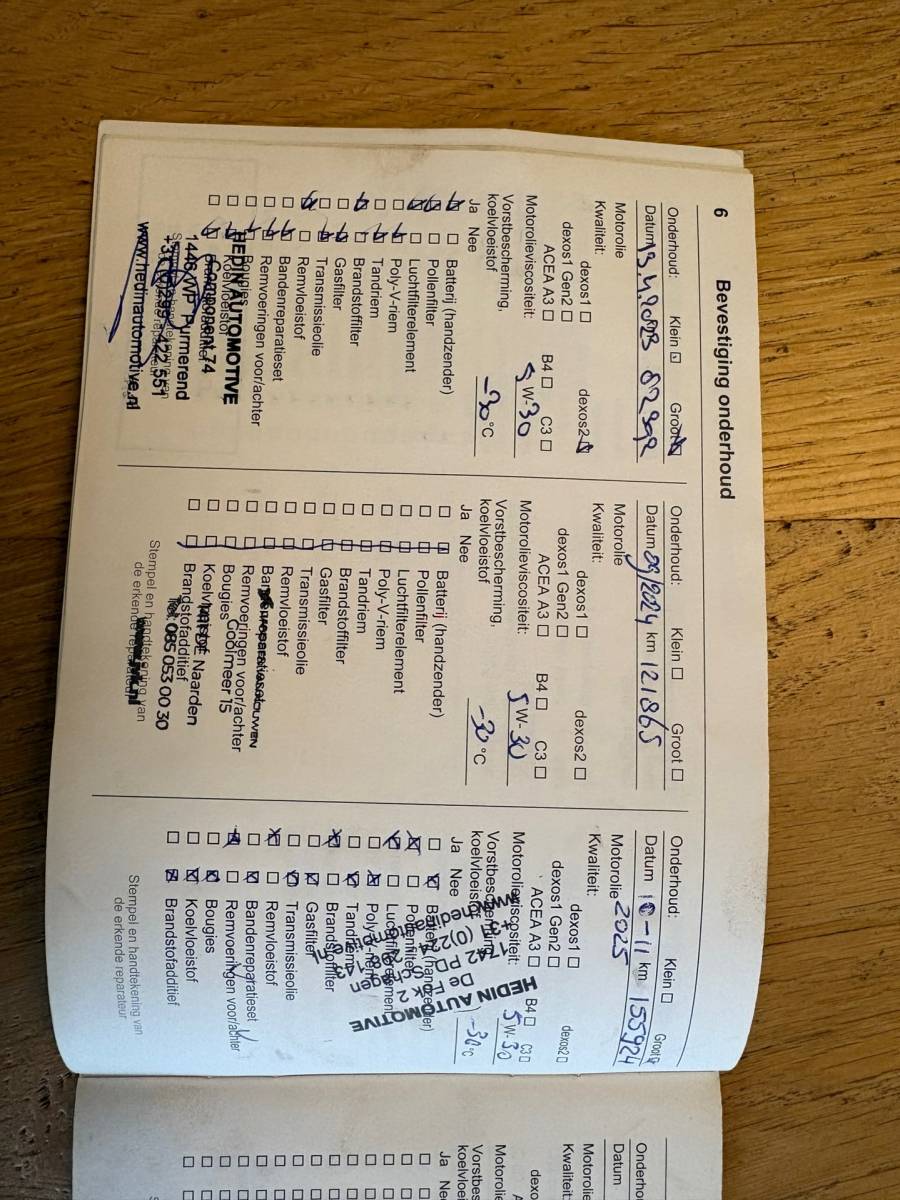 6
Bevestiging onderhoud
Onderhoud: Klein Groot
Datum 13.4.2023
Motorolie
Kwaliteit: dexos1 dexos2
dexos1 Gen2
ACEA A3 B4 C3
Motorolieviscositeit: 5 W-30
Vorstbescherming,
koelvloeistof -30 °C
Ja Nee
Batterij (handzender)
Pollenfilter
Luchtfilterelement
Poly-V-riem
Tandriem
Brandstoffilter
Gasfilter
Transmissieolie
Remvloeistof
Bandenreparatieset
Remvoeringen voor/achter
Bougies
Koelvloeistof
HEDIN AUTOMOTIVE
Component 74
1446 WP Purmerend
+31 (0) 299-422 551
www.hedinautomotive.nl
Onderhoud: Klein Groot
Datum 09/2024 km 121865
Motorolie
Kwaliteit: dexos1 dexos2
dexos1 Gen2
ACEA A3 B4 C3
Motorolieviscositeit: 5 W-30
Vorstbescherming,
koelvloeistof -30 °C
Ja Nee
Batterij (handzender)
Pollenfilter
Luchtfilterelement
Poly-V-riem
Tandriem
Brandstoffilter
Gasfilter
Transmissieolie
Remvloeistof
Remvoeringen voor/achter
Bougies
Gooimeer 15
Koelvloeistof
Naarden
Brandstofadditief
Tel: 085 053 00 30
Stempel en handtekening van
de erkende reparateur
Onderhoud: Klein Groot
Datum 10-11 km 155924
Motorolie 2025
Kwaliteit: dexos1 dexos2
dexos1 Gen2
ACEA A3 B4 C3
Motorolieviscositeit: 5 W-30
Vorstbescherming,
koelvloeistof -30 °C
Ja Nee
Batterij (handzender)
Pollenfilter
Luchtfilterelement
Poly-V-riem
Tandriem
Brandstoffilter
Gasfilter
Transmissieolie
Remvloeistof
Bandenreparatieset
Remvoeringen voor/achter
Bougies
Koelvloeistof
Brandstofadditief
HEDIN AUTOMOTIVE
De Fok 2
1742 PD Schagen
Stempel en handtekening van
de erkende reparateur
Datum
Motorolie
Ja